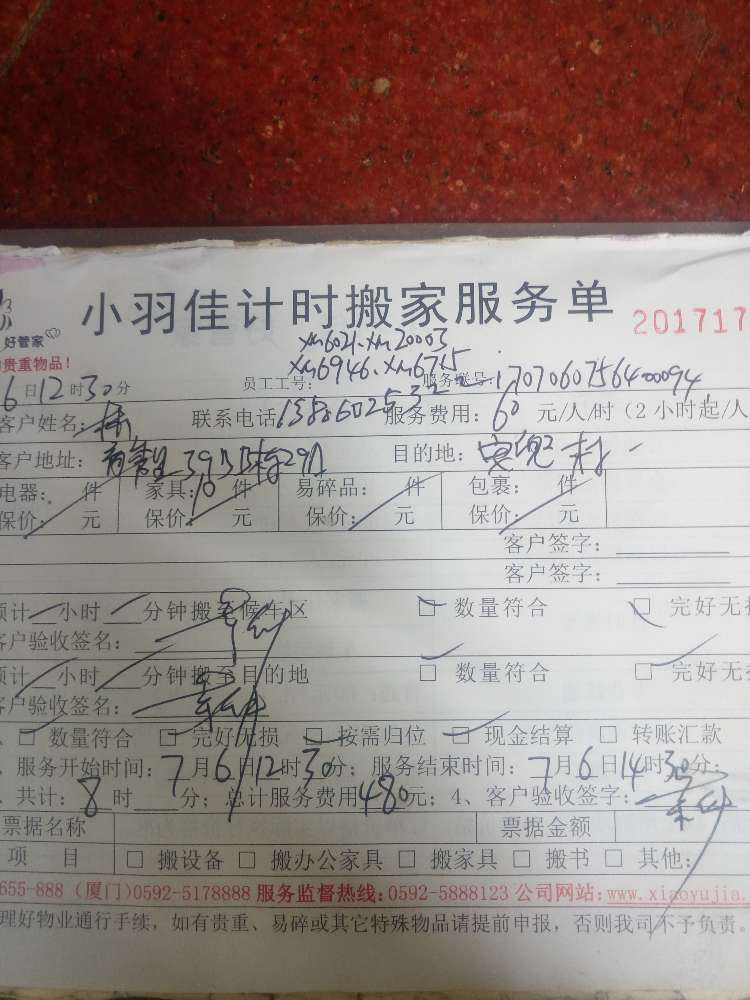 小羽佳计时搬家服务单 201717
好管家
贵重物品!
XM6021.XM20003
XM6946.XM6715
6日12时30分 员工工号: 服务账号:
客户姓名: 林 联系电话 服务费用: 60 元/人/时(2小时起/人
客户地址: 目的地: 村
电器: 件 家具:10 件 易碎品: 件 包裹: 件
保价: 元 保价: 元 保价: 元 保价: 元
客户签字:
客户签字:
预计 小时 分钟搬至候车区 数量符合 完好无损
客户验收签名:
预计 小时 分钟搬至目的地 数量符合 完好无损
客户验收签名:
数量符合 完好无损 按需归位 现金结算 转账汇款
服务开始时间: 7月6日12时30分; 服务结束时间: 7月6日14时30分;
共计: 8 时 分; 总计服务费用480元; 4、客户验收签字:
票据名称 票据金额
项目 搬设备 搬办公家具 搬家具 搬书 其他:
655-888 (厦门)0592-5178888 服务监督热线:0592-5888123 公司网站:www.xiaoyujia.
理好物业通行手续,如有贵重、易碎或其它特殊物品请提前申报,否则我司不予负责。